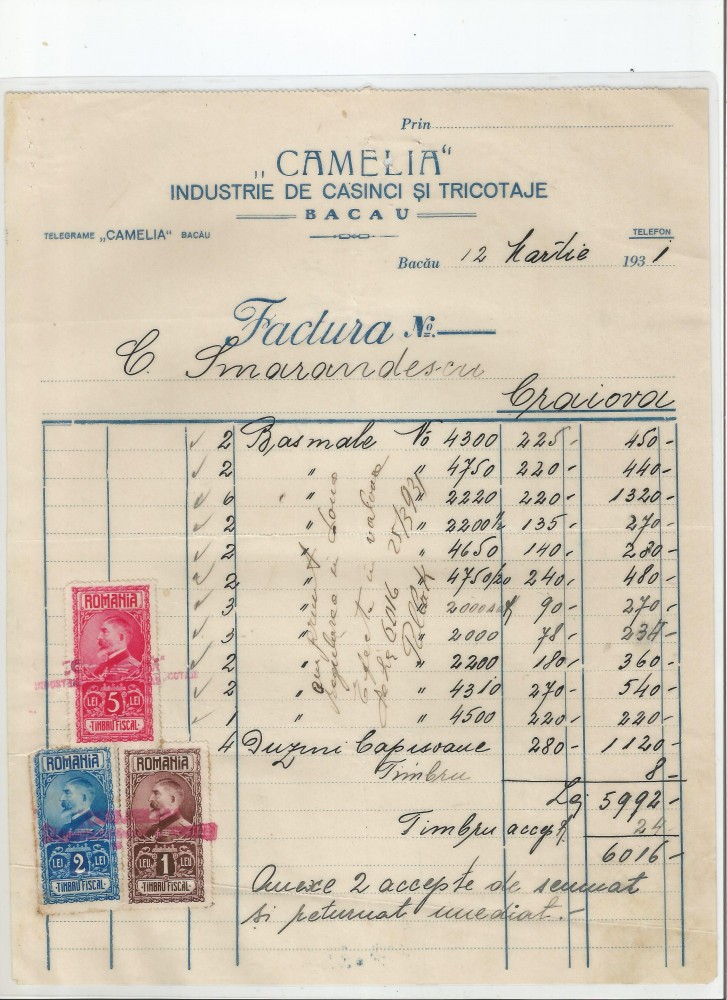 Prin
„CAMELIA“
INDUSTRIE DE CASINCI ȘI TRICOTAJE
BACAU
TELEGRAME „CAMELIA“ BACĂU
TELEFON
Bacău 12 Martie 1931
Factura No.
C. Smarandescu
Craiova
2 Basmale No 4300 225- 450-
2 " " 4750 220- 440-
6 " " 2220 220- 1320-
2 " " 2200½ 135- 270-
2 " " 4650 140- 280-
2 " " 4750/20 240- 480-
3 " 2000 90- 270-
3 " " 2000 78- 234-
2 " " 2200 180- 360-
2 " " 4310 270- 540-
1 " " 4500 220- 220-
4 Duzini Capisoane 280- 1120-
Timbru 8-
Lei 5992-
Timbru accept. 24
6016-
Anexe 2 accepte de semnat
și returnat imediat.-
am primit
regularea in doua
efecte in valoare
de Lei 6016 25/3 931
ROMANIA
5
LEI LEI
TIMBRU FISCAL
ROMANIA
LEI 2 LEI
TIMBRU FISCAL
ROMANIA
LEU 1 LEU
TIMBRU FISCAL